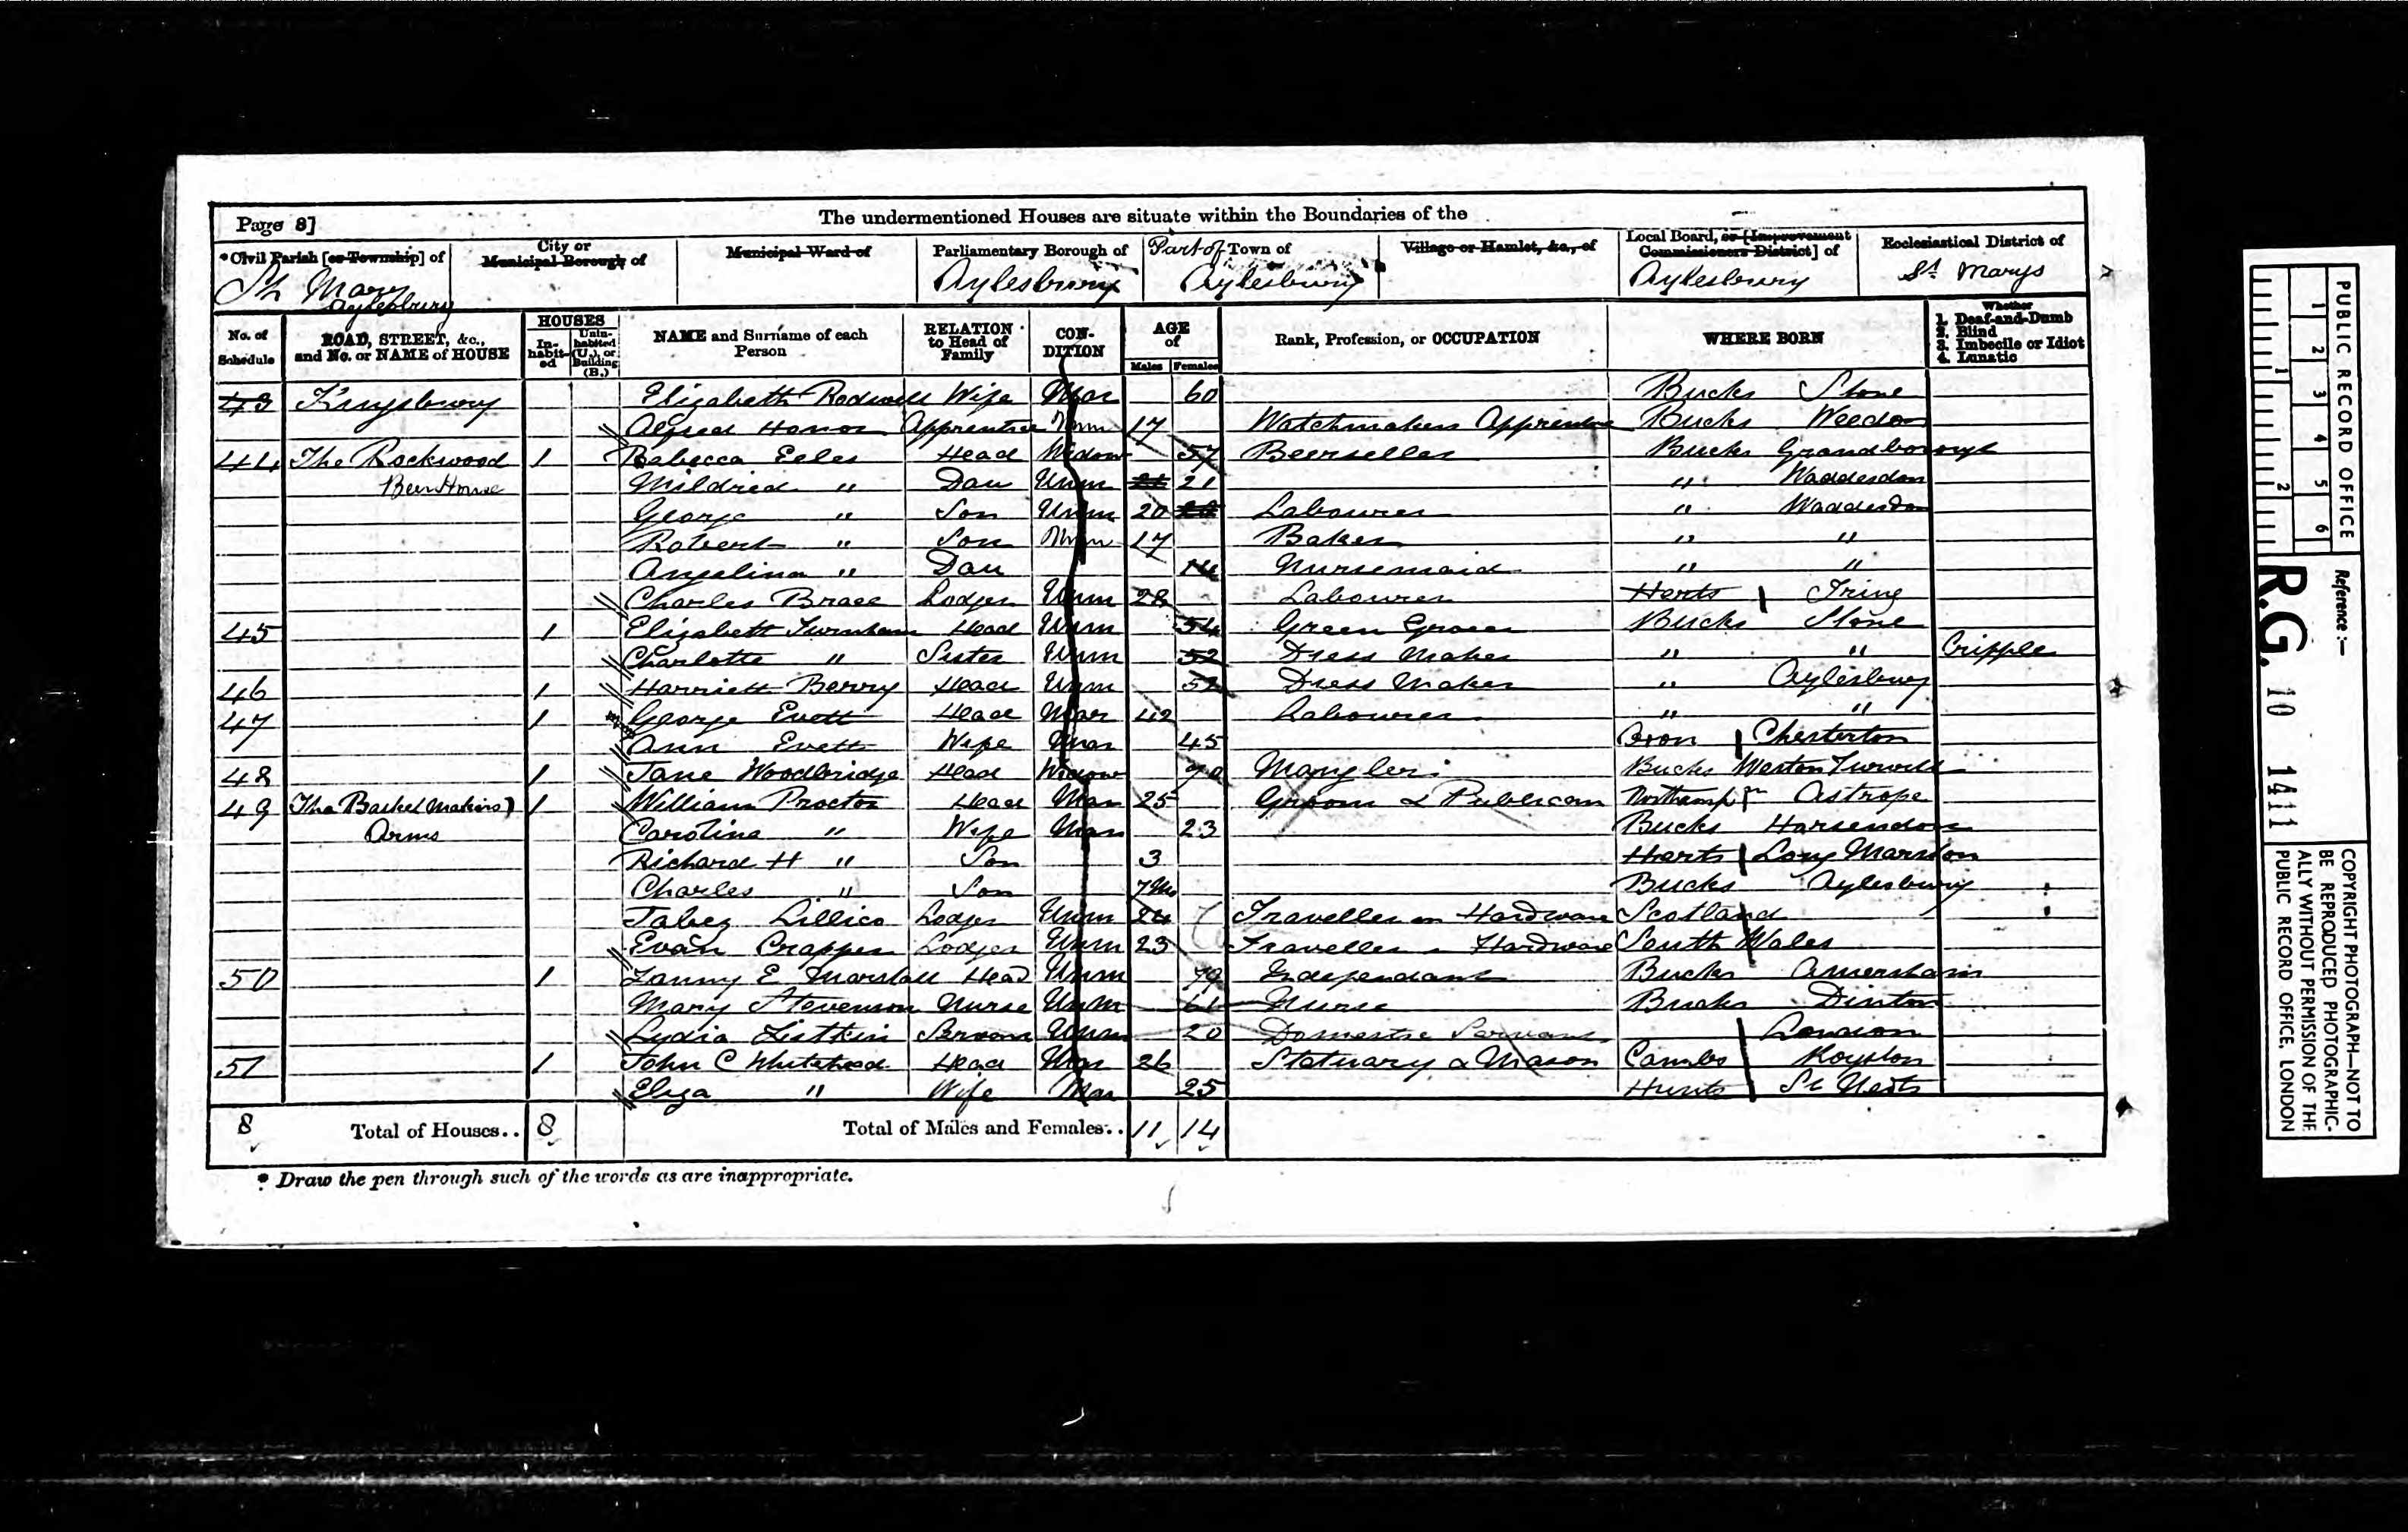 Page 8]
The undermentioned Houses are situate within the Boundaries of the
*Civil Parish [or Township] of
City or Municipal Borough of
Municipal Ward of
Parliamentary Borough of
Part of Town of
Village or Hamlet, &c., of
Local Board, or [Improvement Commissioners District] of
Ecclesiastical District of
St Mary Aylesbury
Aylesbury
Aylesbury
Aylesbury
St Marys
No. of Schedule
ROAD, STREET, &c., and No. or NAME of HOUSE
HOUSES
Inhabited
Uninhabited (U.), or Building (B.)
NAME and Surname of each Person
RELATION to Head of Family
CONDITION
AGE of
Males Females
Rank, Profession, or OCCUPATION
WHERE BORN
Whether
1. Deaf-and-Dumb
2. Blind
3. Imbecile or Idiot
4. Lunatic
43 Kingsbury Elizabeth Rodwell Wife Mar 60 Bucks Stone
Alfred Honor Apprentice Unm 17 Watchmakers Apprentice Bucks Weedon
44 The Rockwood 1 Rebecca Eeles Head Widow 57 Beerseller Bucks Grandborough
Beer House Mildred " Dau Unm 21 " Waddesdon
George " Son Unm 20 Labourer " Waddesdon
Robert " Son Unm 17 Baker " "
Angelina " Dau 14 Nursemaid " "
Charles Brace Lodger Unm 28 Labourer Herts Tring
45 1 Elizabeth Turnham Head Unm 54 Green Grocer Bucks Stone
Charlotte " Sister Unm 52 Dress Maker " " Cripple
46 1 Harriett Berry Head Unm Dress Maker " Aylesbury
47 1 George Evett Head Mar 42 Labourer " "
Ann Evett Wife Mar 45 Oxon Chesterton
48 1 Jane Woodbridge Head Widow 70 Mangler Bucks Weston Turvill
49 The Basket Makers 1 William Proctor Head Mar 25 Groom & Publican Northamp Astrope
Arms Caroline " Wife Mar 23 Bucks Harsendon
Richard H " Son 3 Herts Long Marston
Charles " Son 7 Mo Bucks Aylesbury
Jabez Lillico Lodger Unm 24 Traveller in Hardware Scotland
Evan Crapper Lodger Unm 23 Traveller Hardware South Wales
50 1 Fanny E Marshall Head Unm 79 Independant Bucks Amersham
Mary Stevenson Nurse Unm 61 Nurse Bucks Dinton
Lydia Servant Unm 20 Domestic Servant London
51 1 John C Whitehead Head Mar 26 Statuary & Mason Cambs Royston
Eliza " Wife Mar 25 Hunts St Neots
8 Total of Houses.. 8 Total of Males and Females.. 11 14
* Draw the pen through such of the words as are inappropriate.
PUBLIC RECORD OFFICE
1 2 3 4 5 6
1 2
Reference :—
R.G. 10 1411
COPYRIGHT PHOTOGRAPH—NOT TO BE REPRODUCED PHOTOGRAPHICALLY WITHOUT PERMISSION OF THE PUBLIC RECORD OFFICE, LONDON